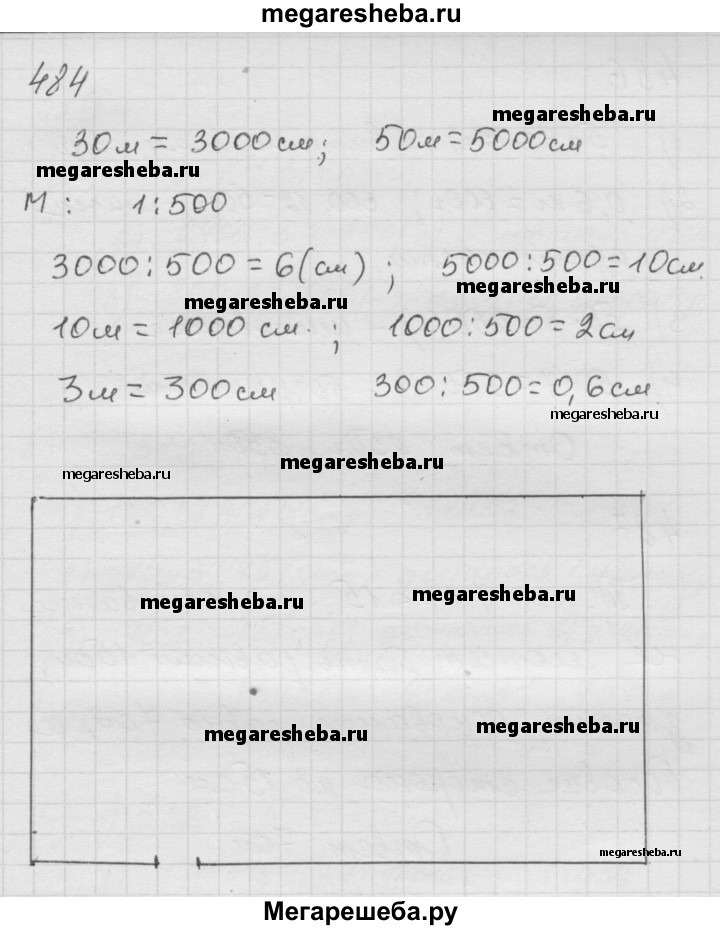 megaresheba.ru
484
megaresheba.ru
30м = 3000см; 50м=5000см
megaresheba.ru
М: 1:500
3000:500=6(см); 5000:500=10см.
megaresheba.ru
megaresheba.ru
10м = 1000 см.; 1000:500=2см
3м = 300см 300:500=0,6см.
megaresheba.ru
megaresheba.ru
megaresheba.ru
megaresheba.ru
megaresheba.ru
megaresheba.ru
megaresheba.ru
megaresheba.ru
Мегарешеба.ру